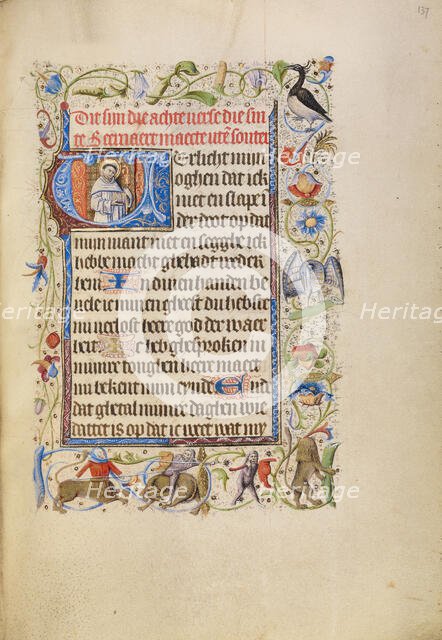 137
Die sijn die achte verse die sin
te Bernaert maecte uten souter
Verlicht mijn
oghen dat ick
niet en slape i
der doot op dat
mijn viant niet en segghe ick
hebbe macht ghehadt teghen
hem In dijn handen be
vele ic mijnen gheest du hebste
mi verlost heere god der waer
heit Ic heb ghesproken in
mijnre tonghen heere maect
mi bekent mijn eynde End
dat ghetal mijnre daghen wie
dattet is op dat ic weet wat my
Heritage Images